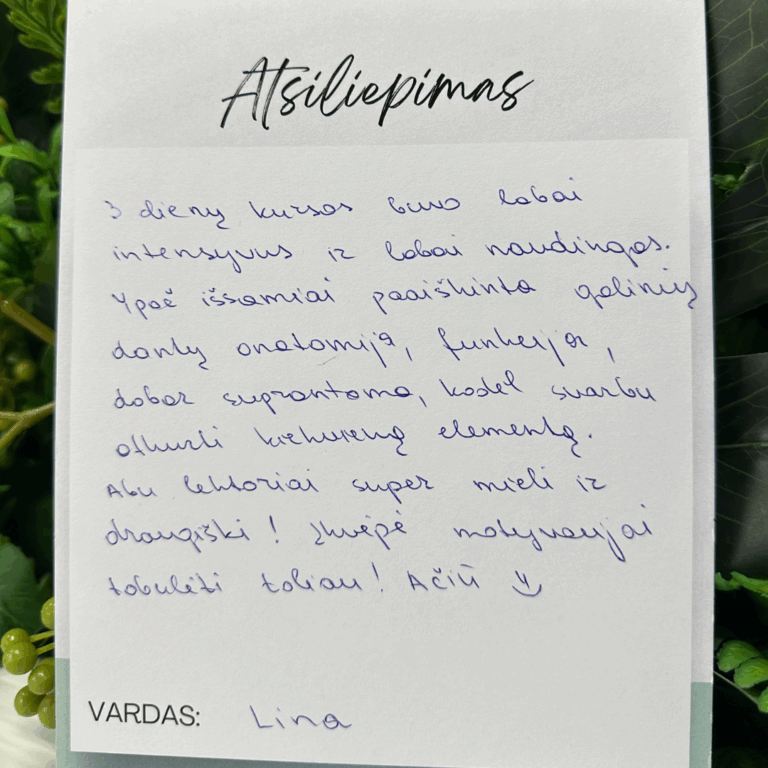 Atsiliepimas
3 dienų kursas buvo labai
intensyvus ir labai naudingas.
Ypač išsamiai paaiškinta galinių
dantų anatomija, funkcija,
dabar suprantama, kodėl svarbu
atkurti kiekvieną elementą.
Abu lektoriai super mieli ir
draugiški! Įkvėpė motyvacijai
tobulėti toliau! Ačiū
VARDAS: Lina